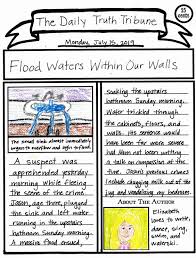 The Daily Truth Tribune
25 cents
Monday, July 15, 2019
Flood Waters Within Our Walls
The small sink almost immediately
began to overflow and
A suspect was
apprehended yesterday
morning while fleeing
the scene of the crime.
Jason, age three, plugged
the sink and left water
running in the upstairs
bathroom Sunday morning.
A massive flood ensued,
soaking the upstairs
bathroom Sunday morning.
Water trickled through
the cabinets, floors, and
walls. His sentence would
have been the more severe
had Mom not been writing
a talk on compassion at the
time. Jason's previous crimes
include chugging milk out of the
jug and vandalizing his diapers.
About The Author
Elizabeth
loves to write,
dance, sing,
swim, and
waterski.